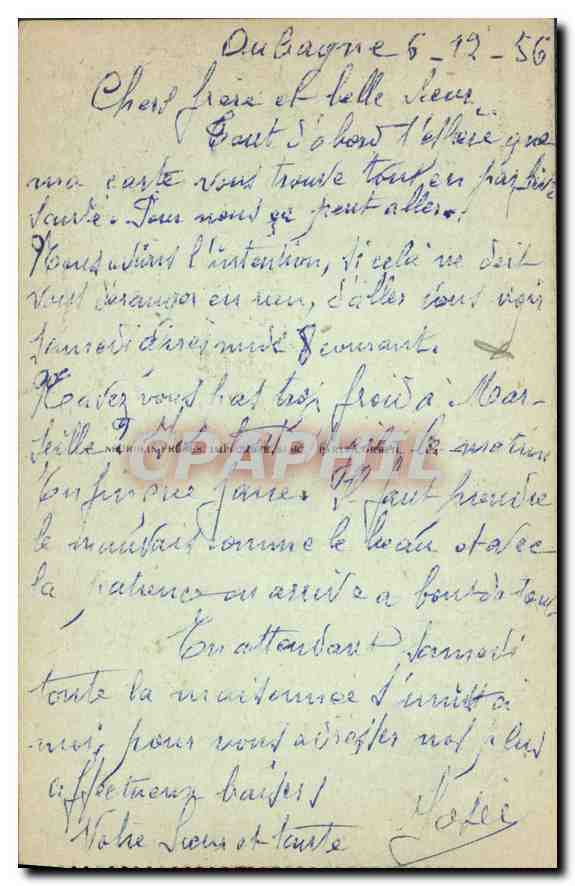 Aubagne 6 - 12 - 56
Chers frère et belle Sœur,
Tout d'abord j'espère que
ma carte vous trouve tous en parfaite
santé. Pour nous ça peut aller.
Nous avons l'intention, si cela ne doit
vous déranger en rien, d'aller vous voir
samedi après midi 8 courant.
N'avez vous pas trop froid à Mar-
seille ? le matin
Enfin que faire. Il faut prendre
le mauvais comme le beau et avec
la patience on arrive a bout de tout.
En attendant Samedi
toute la maisonnée s'unit à
moi, pour vous adresser nos plus
affectueux baisers
Votre Sœur et tante
CPAPHIL.com